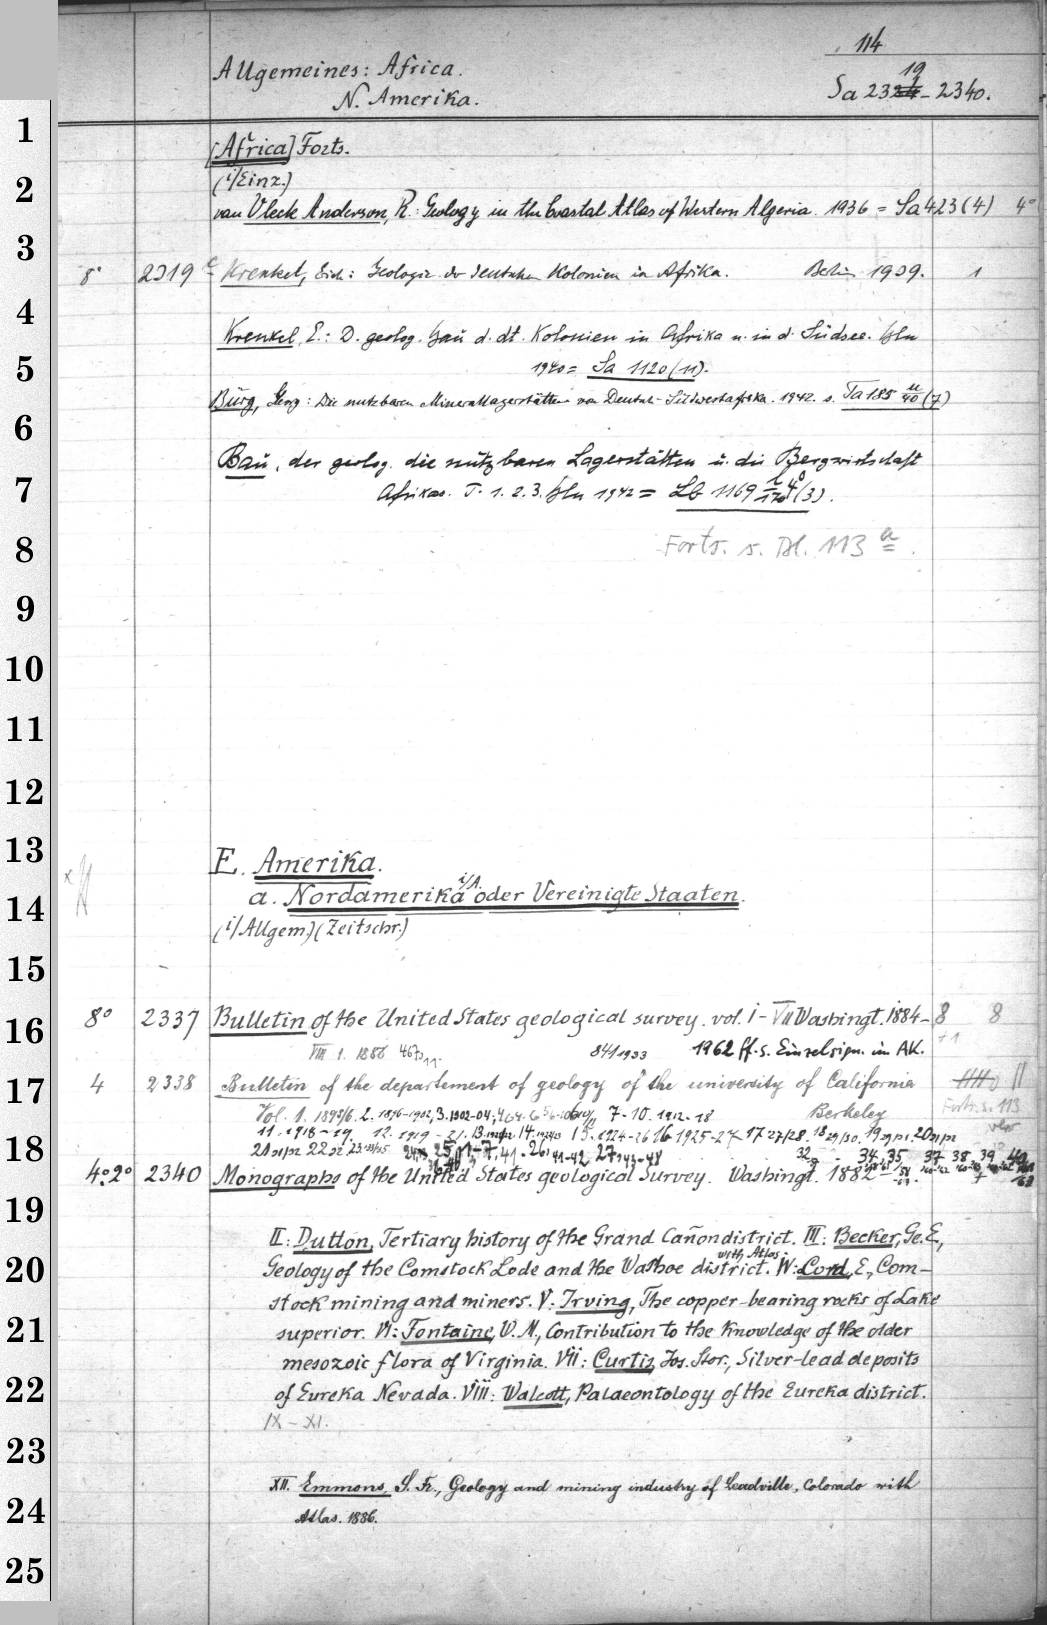 114
Allgemeines: Africa.
N. Amerika.
19
Sa 23 - 2340.
1
[Africa] Forts.
2
(i/Einz.)
van Vleck Anderson, R.: Geology in the Coastal Atlas of Western Algeria. 1936 = Sa 423 (4) 4°
3
8° 2319 c Krenkel, Erich: Geologie der deutschen Kolonien in Afrika. Berlin 1939. 1
4
Krenkel, E.: D. geolog. Bau d. dt. Kolonien in Afrika u. in d. Südsee. Bln
5
1940 = Sa 1120 (11).
Bürg, Georg: Die nutzbaren Minerallagerstätten von Deutsch-Südwestafrika. 1942. s. Ta 185 (7)
6
Bau, der geolog. die nutzbaren Lagerstätten u. die Bergwirtschaft
7
Afrikas. T. 1. 2. 3. Bln 1942 = Lb 1169 4° (3).
8
Forts. s. Bl. 113 a.
9
10
11
12
13
E. Amerika.
14
a. Nordamerika i/A. oder Vereinigte Staaten.
(i/Allgem.) (Zeitschr.)
15
16
8° 2337 Bulletin of the United States geological survey. vol. I - VII Washingt. 1884- 8 8
VIII 1. 1886 841 1933 1962 ff. s. Einzelsign. im AK. +1
17
4 2338 Bulletin of the departement of geology of the university of California
Forts. s. 113
Vol. 1. 1893/6. 2. 1896-1902, 3. 1902-04, 7-10. 1912-18 Berkeley
11. 1918-19 12. 1919-21. 13. 14. 15. 1924-26 16 1925-27 17 27/28. 18 29/30. 19 20
18
22 23 25 26 41-42 27 43-48 32 34 35 37 38 39 40
4°.2° 2340 Monographs of the United States geological Survey. Washingt. 1882-
19
II: Dutton, Tertiary history of the Grand Cañon district. III: Becker, Ge. E.,
with Atlas
20
Geology of the Comstock Lode and the Washoe district. IV: Lord, E., Com-
stock mining and miners. V: Irving, The copper-bearing rocks of Lake
21
superior. VI: Fontaine, W. M., Contribution to the Knowledge of the older
mesozoic flora of Virginia. VII: Curtis, Jos. Stor., Silver-lead deposits
22
of Eureka Nevada. VIII: Walcott, Palaeontology of the Eureka district.
IX - XI.
23
XII. Emmons, S. Fr., Geology and mining industry of Leadville, Colorado with
24
Atlas. 1886.
25